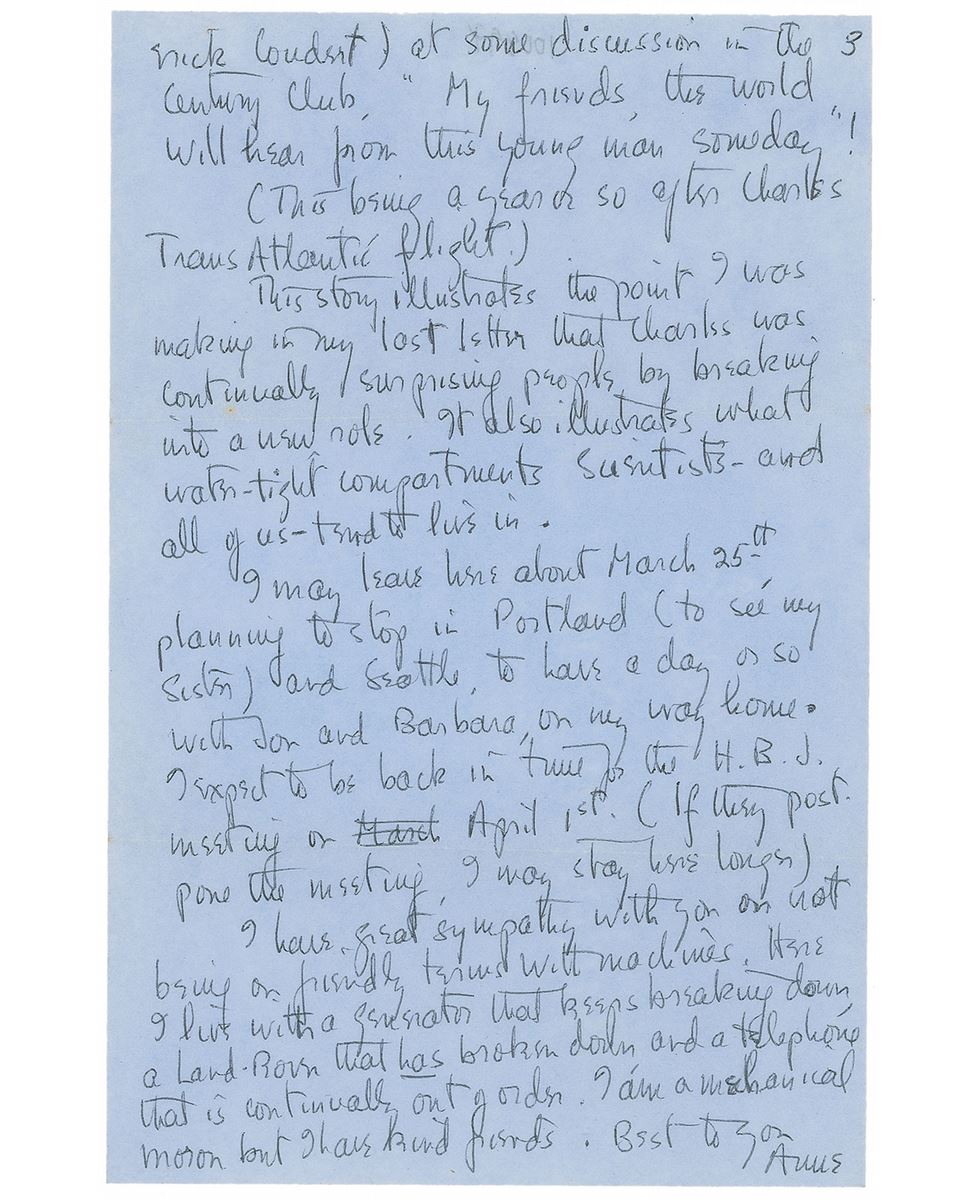 erick Coudert) at some discussion in the 3
Century Club " My friends, the world
will hear from this young man someday"!
(This being a year or so after Charles
TransAtlantic flight.)
This story illustrates the point I was
making in my last letter that Charles was
continually surprising people by breaking
into a new role. It also illustrates what
water-tight compartments Scientists - and
all of us - tend to live in.
I may leave here about March 25th
planning to stop in Portland (to see my
sister) and Seattle, to have a day or so
with Jon and Barbara, on my way home.
I expect to be back in time for the H.B.J.
meeting on March April 1st. (If they post-
pone the meeting, I may stay here longer)
I have great sympathy with you on not
being on friendly terms with machines. Here
I live with a generator that keeps breaking down
a Land-Rover that has broken down and a telephone
that is continually out of order. I am a mechanical
moron but I have kind friends. Best to you
Anne